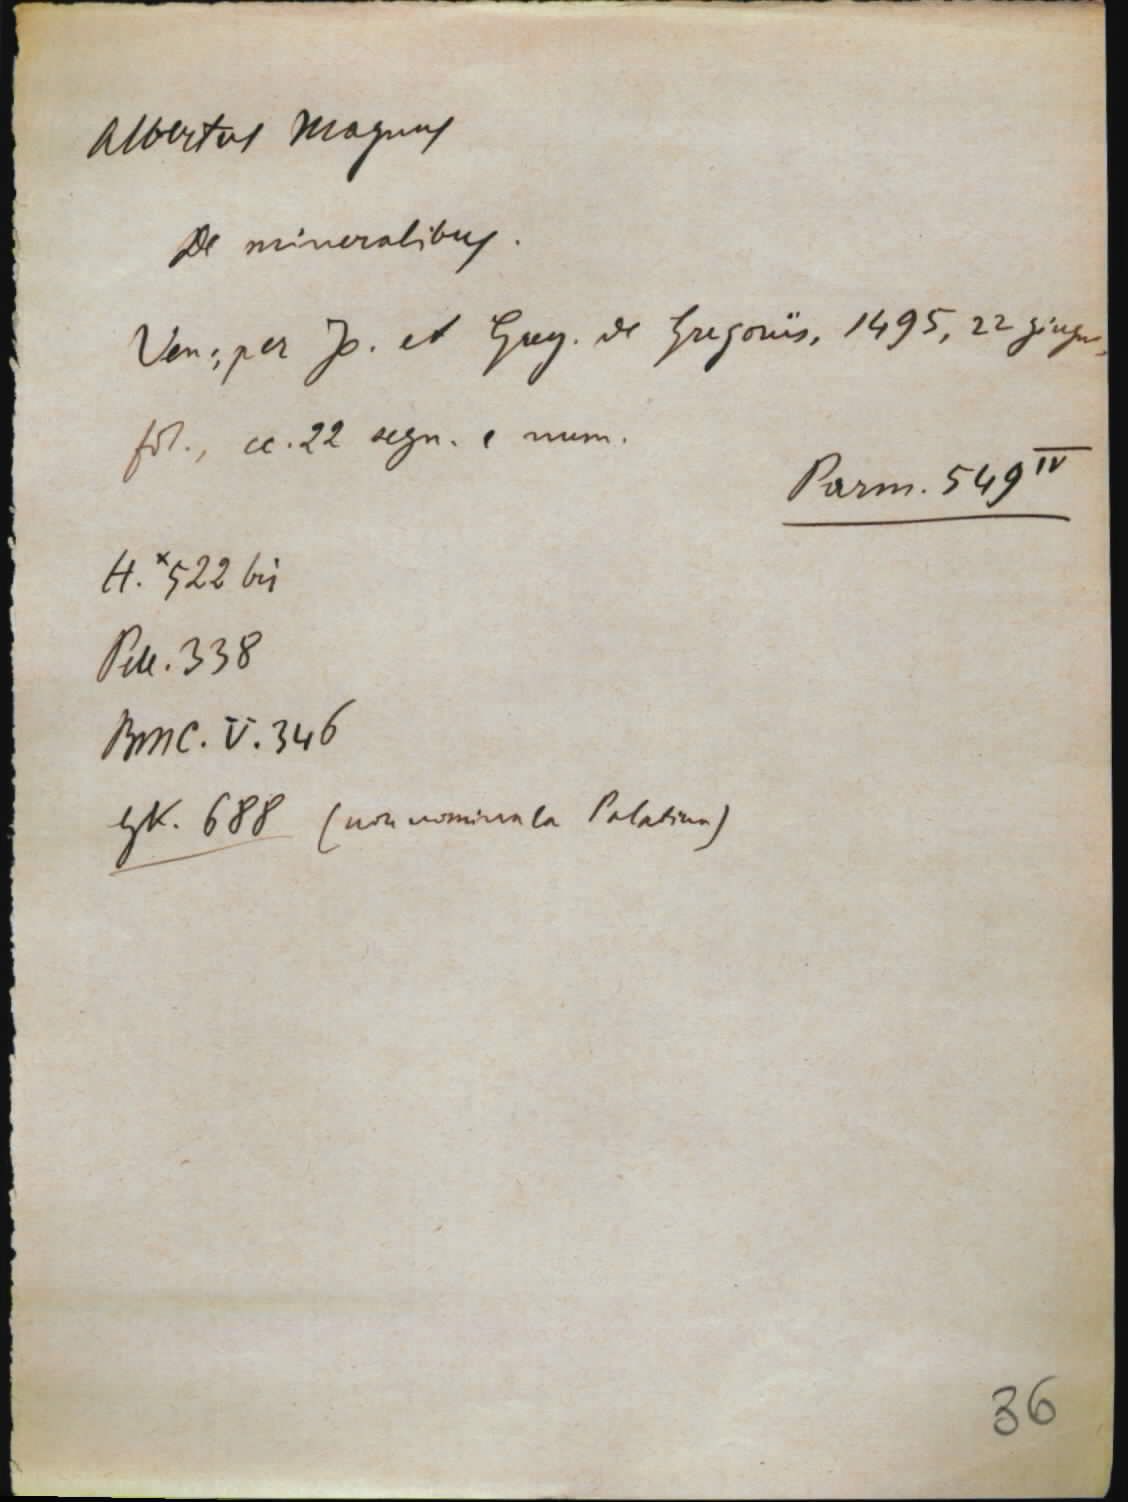 Albertus Magnus
De mineralibus.
Ven., per Jo. et Greg. de Gregoriis, 1495, 22 giugno,
fol., cc. 22 segn. e num.
Parm. 549 IV
H. *522 bis
Pell. 338
BMC. V. 346
GK. 688 (non nomina la Palatina)
36